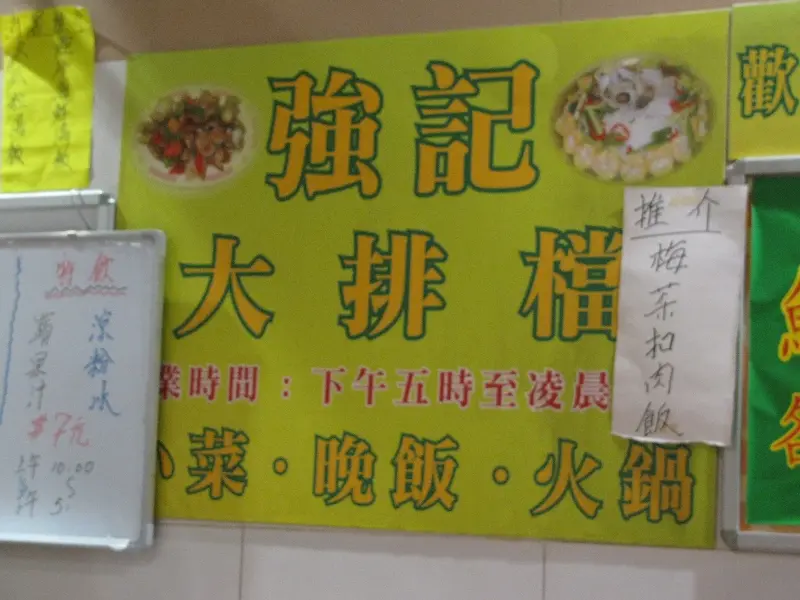 強記
大排檔
業時間：下午五時至凌晨
小菜·晚飯·火鍋
推介
梅菜扣肉飯
歡
特飲
涼粉冰
蘋果汁
$7元
上午 10.00
下午 5: